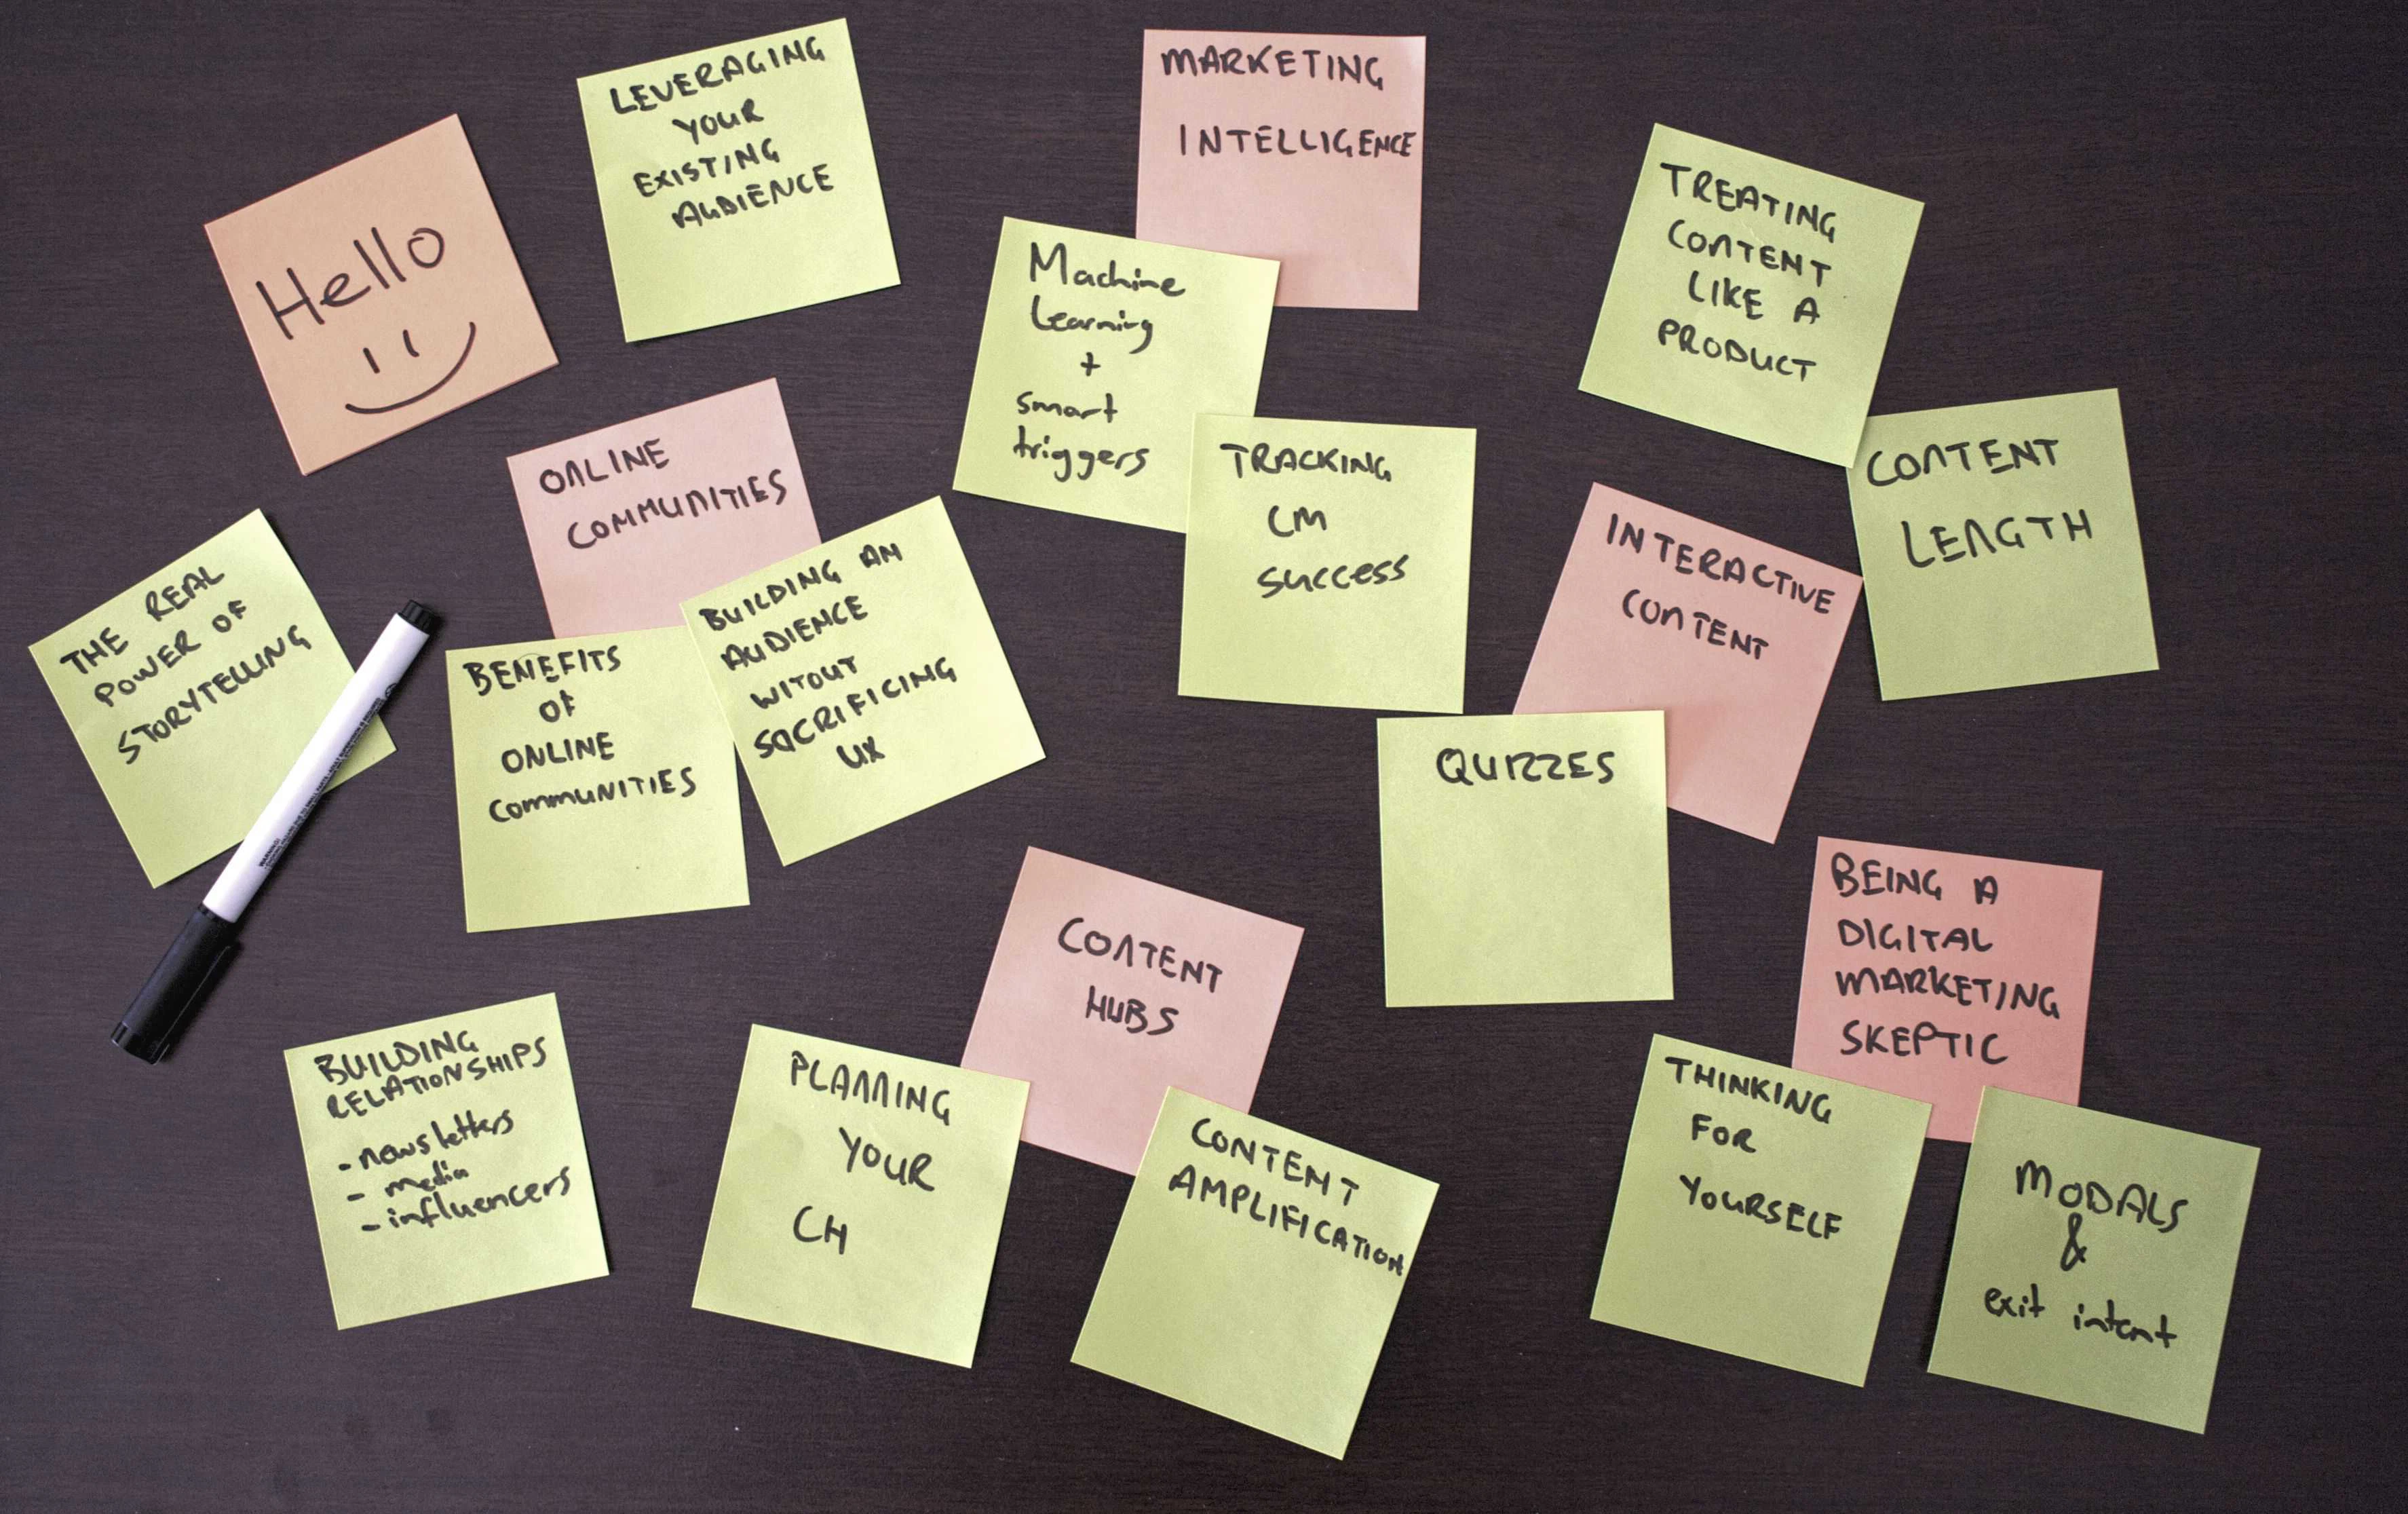 Hello
LEVERAGING
YOUR
EXISTING
AUDIENCE
MARKETING
INTELLIGENCE
Machine
Learning
+
smart
triggers
TRACKING
CM
SUCCESS
TREATING
CONTENT
LIKE A
PRODUCT
CONTENT
LENGTH
ONLINE
COMMUNITIES
BENEFITS
OF
ONLINE
COMMUNITIES
BUILDING AN
AUDIENCE
WITOUT
SACRIFICING
UX
THE REAL
POWER OF
STORYTELLING
INTERACTIVE
CONTENT
QUIZZES
BEING A
DIGITAL
MARKETING
SKEPTIC
THINKING
FOR
YOURSELF
MODALS
&
exit intent
CONTENT
HUBS
PLANNING
YOUR
CH
CONTENT
AMPLIFICATION
BUILDING
RELATIONSHIPS
- newsletters
- media
- influencers